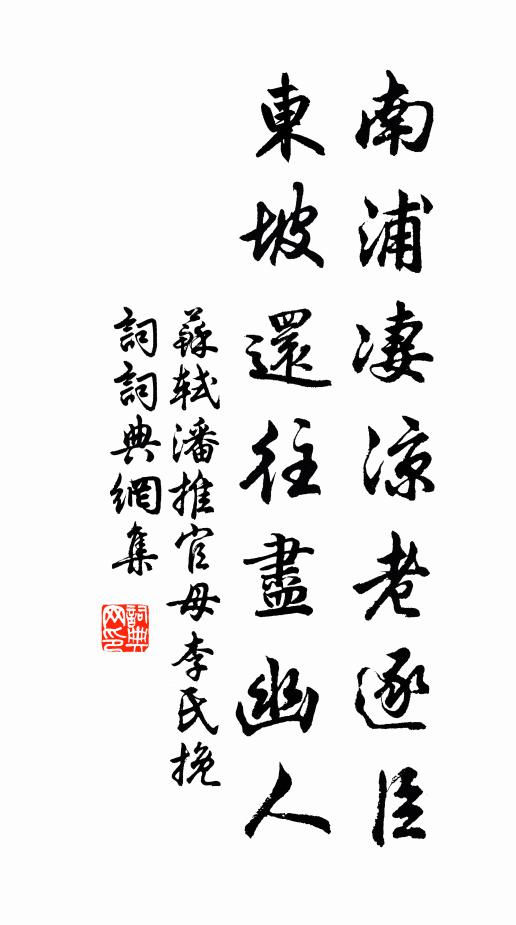 南浦凄涼老逐臣
東坡還往盡幽人
蘇軾潘推官母李氏挽
詞詞典網集
詞典网印